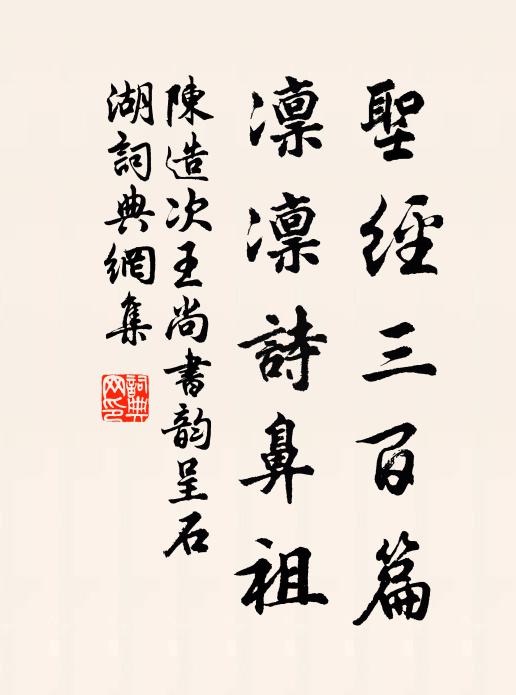 聖經三百篇
凛凛詩鼻祖
陳造次王尚書韵呈石
湖詞典網集
詞典網印